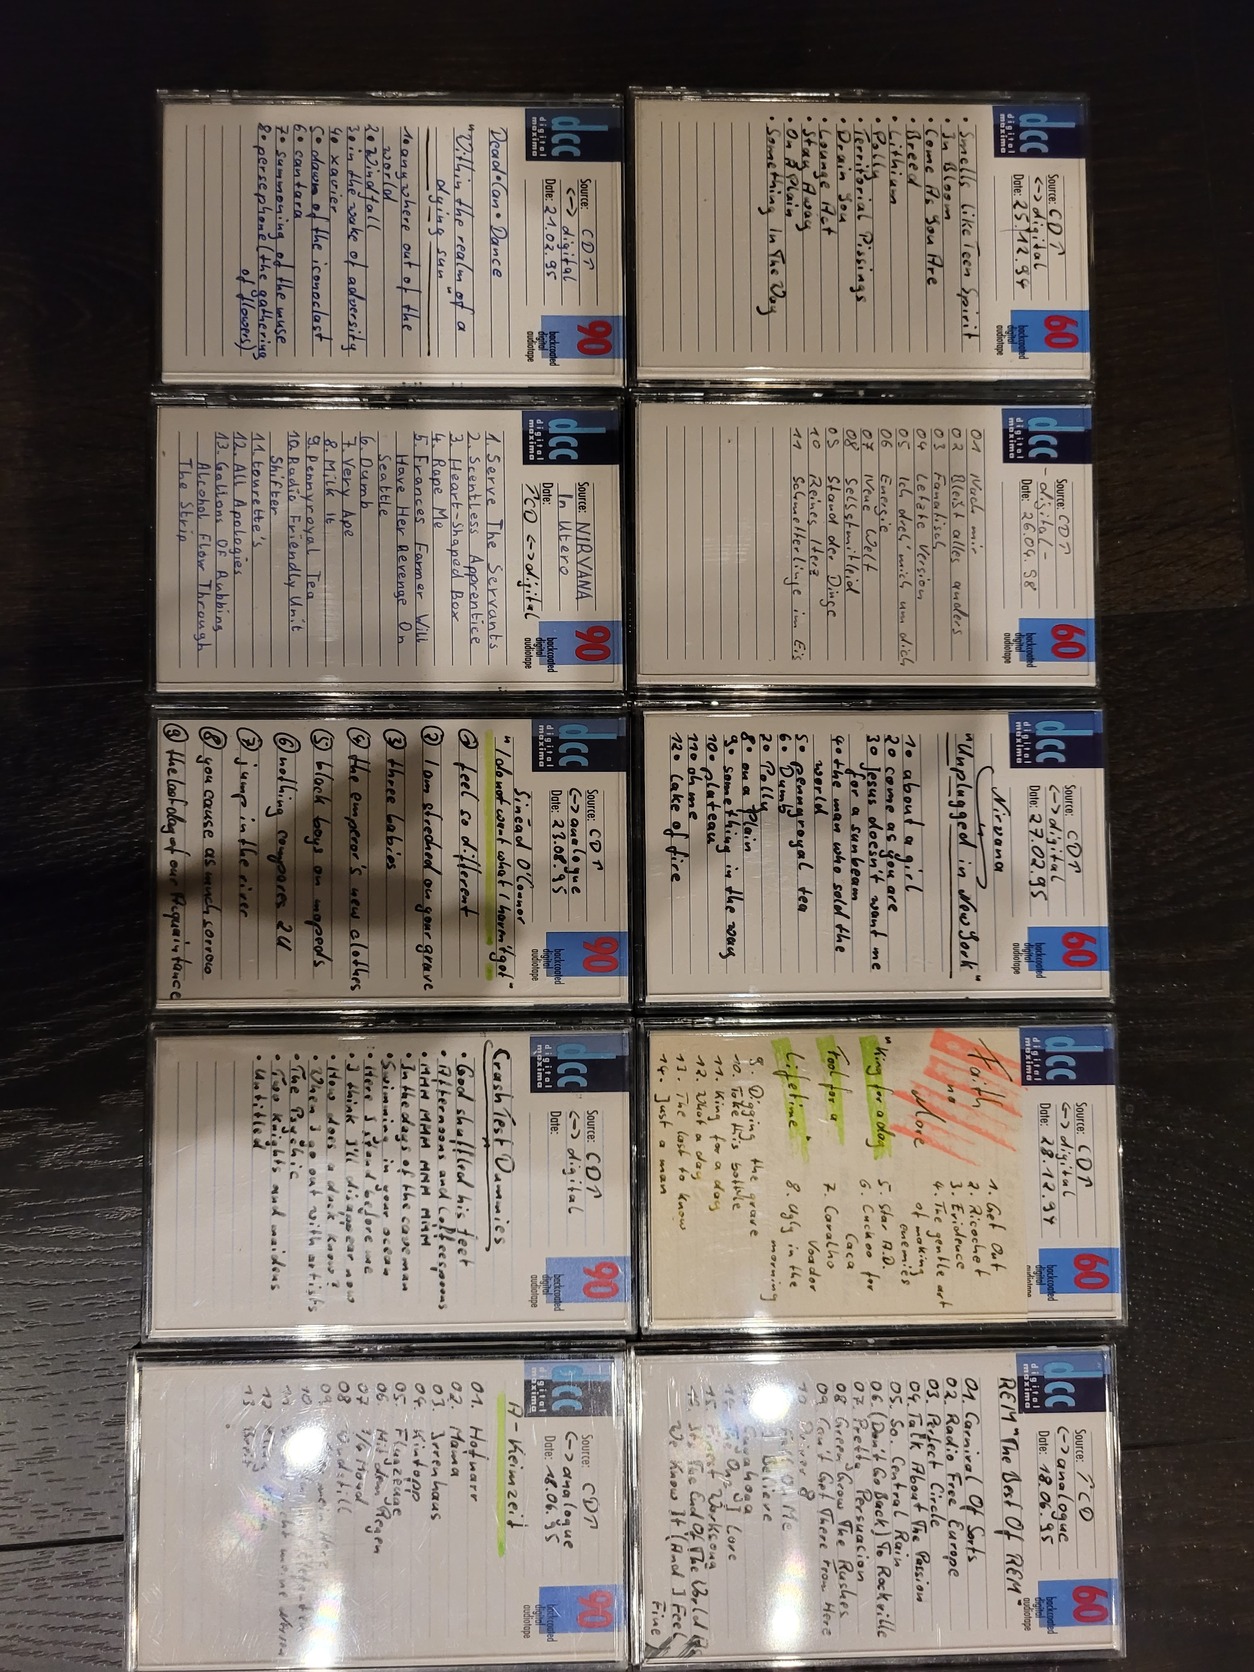 dcc
digital
maxima
Source: CD↑
<-> digital
Date: 25.12.94
60
backcoated
digital
audiotape
• Smells Like Teen Spirit
• In Bloom
• Come As You Are
• Breed
• Lithium
• Polly
• Territorial Pissings
• Drain You
• Lounge Act
• Stay Away
• On A Plain
• Something In The Way
dcc
digital
maxima
Source: CD↑
- digital -
Date: 26.04.98
60
backcoated
digital
audiotape
01 Nach mir
02 Bleibt alles anders
03 Fanatisch
04 Letzte Version
05 Ich dreh mich um dich
06 Energie
07 Neue Welt
08 Selbstmitleid
09 Stand der Dinge
10 Reines Herz
11 Schmetterlinge im Eis
dcc
digital
maxima
Source: CD↑
<-> digital
Date: 27.02.95
60
backcoated
digital
audiotape
Nirvana
"Unplugged in New York"
1o about a girl
2o come as you are
3o Jesus doesn't want me
for a sunbeam
4o the man who sold the
world
5o pennyroyal tea
6o Dumb
7o Polly
8o on a plain
9o something in the way
10o plateau
11o oh me
12o lake of fire
dcc
digital
maxima
Source: CD↑
<-> digital
Date: 28.12.94
60
backcoated
digital
Faith
no
More
"King for a day
Fool for a
Lifetime"
1. Get Out
2. Ricochet
3. Evidence
4. The gentle art
of making
enemies
5. Star A.D.
6. Cuckoo for
Caca
7. Caralho
Voador
8. Ugly in the
morning
9. Digging the grave
10. Take this bottle
11. King for a day
12. What a day
13. The last to know
14. Just a man
dcc
digital
maxima
Source: ↑CD
<-> analogue
Date: 18.06.95
60
backcoated
digital
audiotape
REM "The Best Of REM"
01. Carnival Of Sorts
02. Radio Free Europe
03. Perfect Circle
04. Talk About The Passion
05. So. Central Rain
06 (Don't Go Back) To Rockville
07 Pretty Persuasion
08 Green Grow The Rushes
09 Can't Get There From Here
10 Driver 8
I Believe
Cuyahoga
The One I Love
Finest Worksong
It's The End Of The World As
We Know It (And I Feel
Fine)
dcc
digital
maxima
Source: CD↑
<-> digital
Date: 21.02.95
90
backcoated
digital
audiotape
Dead • Can • Dance
"Within the realm of a
dying sun"
1o anywhere out of the
world
2o windfall
3o in the wake of adversity
4o xavier
5o dawn of the iconoclast
6o cantara
7o summoning of the muse
8o persephone (the gathering
of flowers)
dcc
digital
maxima
Source: NIRVANA
In Utero
Date:
↑CD <-> digital
90
backcoated
digital
audiotape
1. Serve The Servants
2. Scentless Apprentice
3. Heart-Shaped Box
4. Rape Me
5. Frances Farmer Will
Have Her Revenge On
Seattle
6. Dumb
7. Very Ape
8. Milk It
9. Pennyroyal Tea
10. Radio Friendly Unit
Shifter
11. tourette's
12. All Apologies
13. Gallons Of Rubbing
Alcohol Flow Through
The Strip
dcc
digital
maxima
Source: CD↑
<-> analogue
Date: 23.08.95
90
backcoated
digital
audiotape
Sinéad O'Connor
"I do not want what I haven't got"
① feel so different
② I am streched on your grave
③ three babies
④ the emperor's new clothes
⑤ black boys on mopeds
⑥ nothing compares 2U
⑦ jump in the river
⑧ you cause as much sorrow
⑨ the last day of our Acquaintance
dcc
digital
maxima
Source: CD↑
<-> digital
Date:
90
backcoated
digital
audiotape
Crash Test Dummies
• God shuffled his feet
• Afternoons and Coffeespoons
• MMM MMM MMM MMM
• In the days of the caveman
• Swimming in your ocean
• Here I stand before me
• I think I'll disappear now
• How does a duck know?
• When I go out with artists
• The Psychic
• Two knights and maidens
• Untitled
dcc
digital
maxima
Source: CD↑
<-> analogue
Date: 18.06.95
90
backcoated
digital
audiotape
A-Keimzeit
01. Hofnarr
02. Mama
03 Irrenhaus
04 Kintopp
05 Flugzeuge
06 Mit dem Regen
07 7/8 Mond
08 Windstill
09
10
12
13